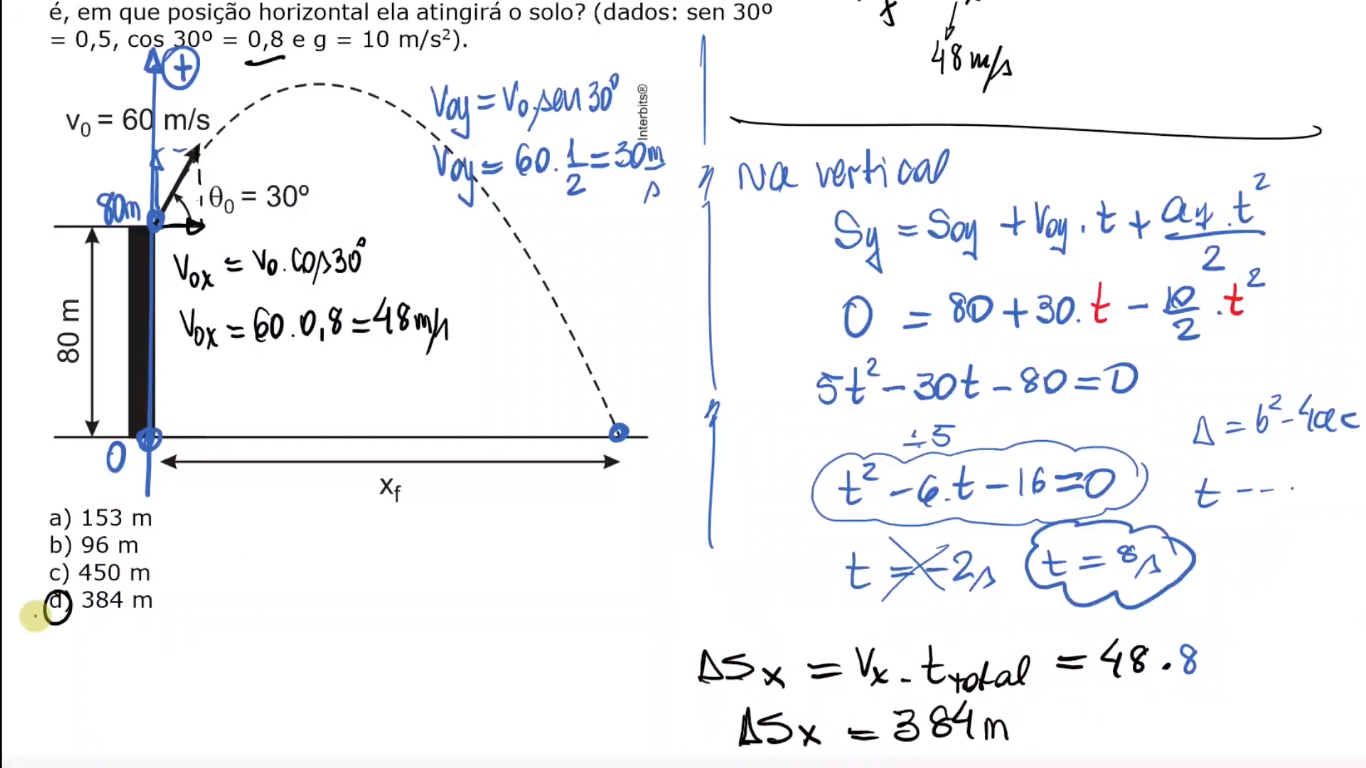 é, em que posição horizontal ela atingirá o solo? (dados: sen 30º
= 0,5, cos 30º = 0,8 e g = 10 m/s²).
+
v₀ = 60 m/s
θ₀ = 30º
80m
80 m
0
x_f
Interbits®
V0y = V0.sen 30°
V0y = 60.1/2 = 30 m/s
V0x = V0.cos 30°
V0x = 60.0,8 = 48 m/s
a) 153 m
b) 96 m
c) 450 m
d) 384 m
x
48 m/s
Na vertical
Sy = S0y + V0y.t + ay.t²/2
0 = 80 + 30.t - 10/2.t²
5t² - 30t - 80 = 0
÷5
t² - 6.t - 16 = 0
Δ = b² - 4ac
t - - .
t = -2s
t = 8s
ΔSx = Vx . t total = 48 . 8
ΔSx = 384 m